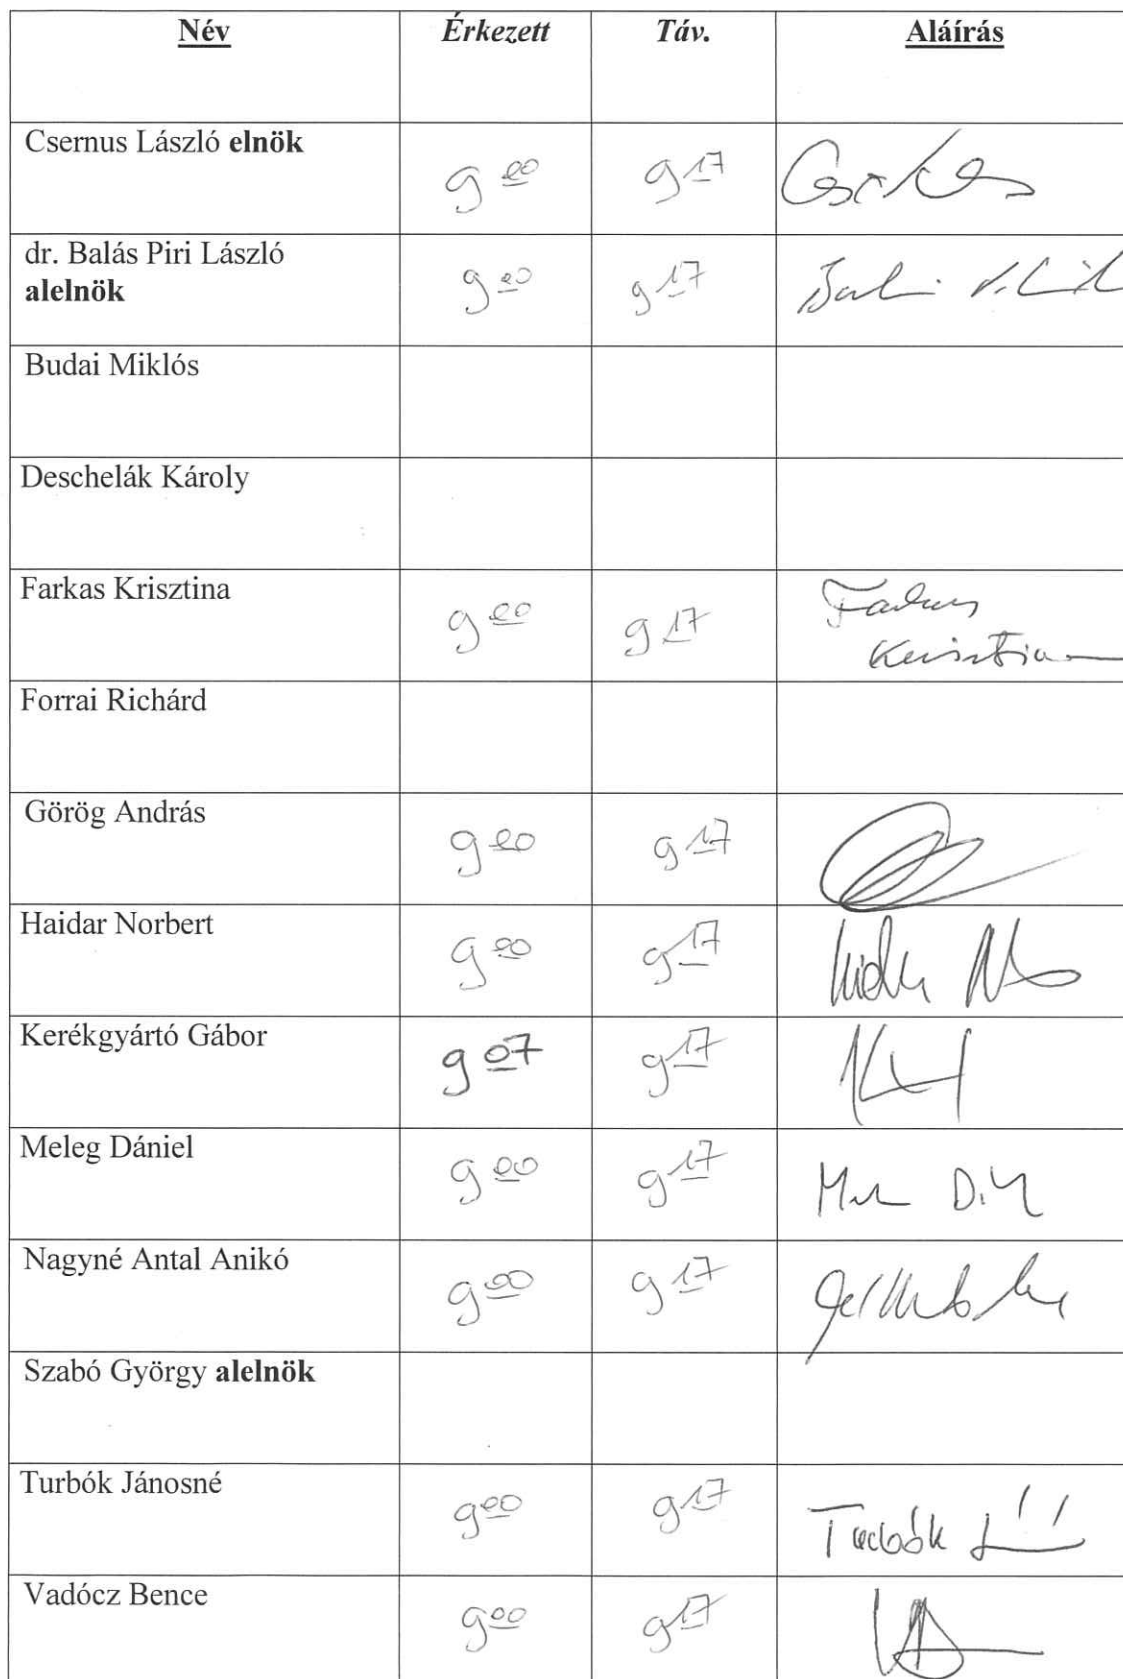 Név Érkezett Táv. Aláírás
Csernus László elnök 9 00 9 17
dr. Balás Piri László
alelnök 9 00 9 17
Budai Miklós
Deschelák Károly
Farkas Krisztina 9 00 9 17 Farkas
Krisztina
Forrai Richárd
Görög András 9 00 9 17
Haidar Norbert 9 00 9 17
Kerékgyártó Gábor 9 07 9 17
Meleg Dániel 9 00 9 17
Nagyné Antal Anikó 9 00 9 17
Szabó György alelnök
Turbók Jánosné 9 00 9 17 Turbók
Vadócz Bence 9 00 9 17